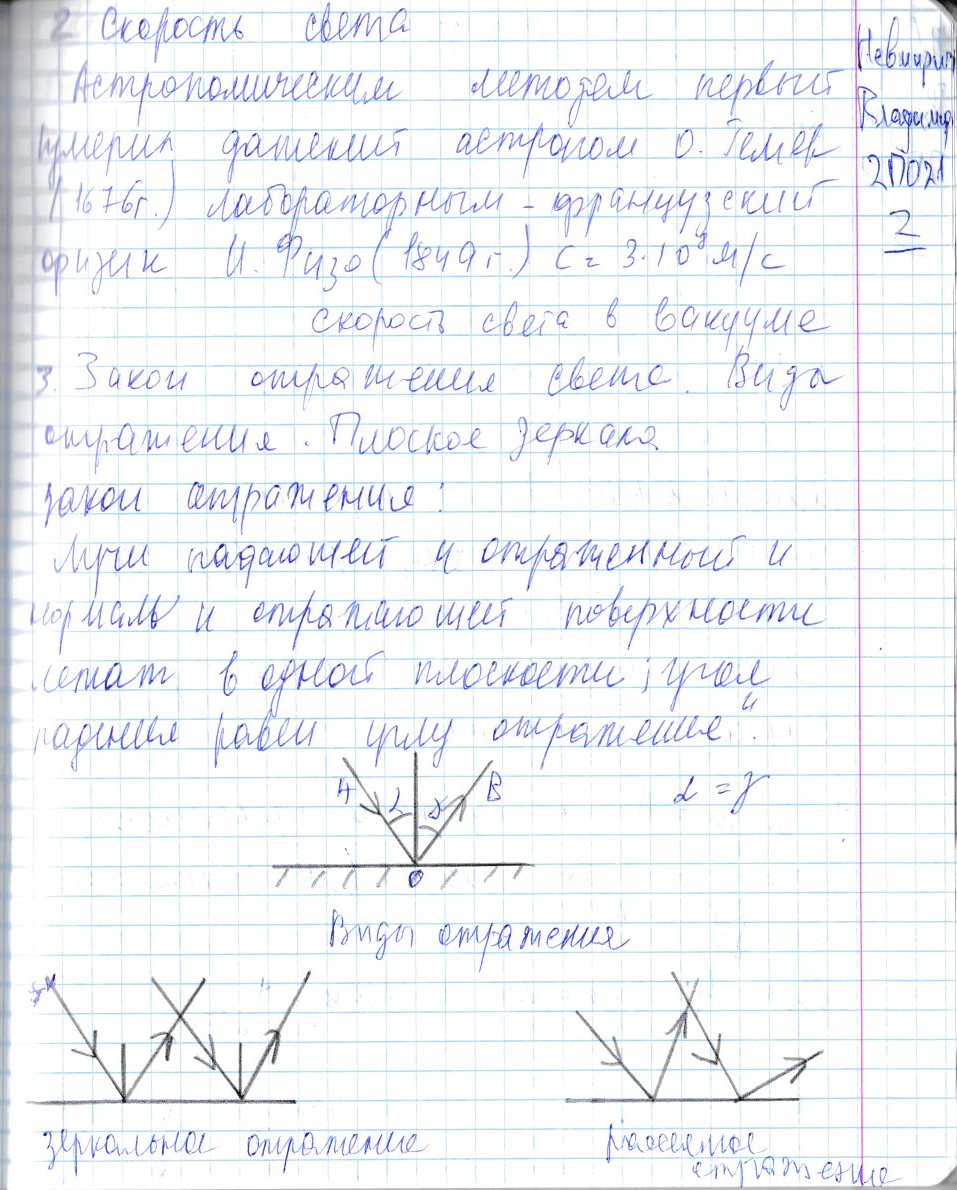 2 Скорость света
Астрономическим методом первый
измерил датский астроном О. Ремер
(1676г.) лабораторным - французский
физик И. Физо (1849г.) c = 3·10⁸ м/с
скорость света в вакууме
3. Закон отражения света. Виды
отражения. Плоское зеркало
Закон отражения:
Лучи падающий и отраженный и
нормаль к отражающей поверхности
лежат в одной плоскости, угол
падения равен углу отражения".
A α γ B α = γ
O
Виды отражения
зеркальное отражение рассеянное
отражение
Владимир
2П021
2